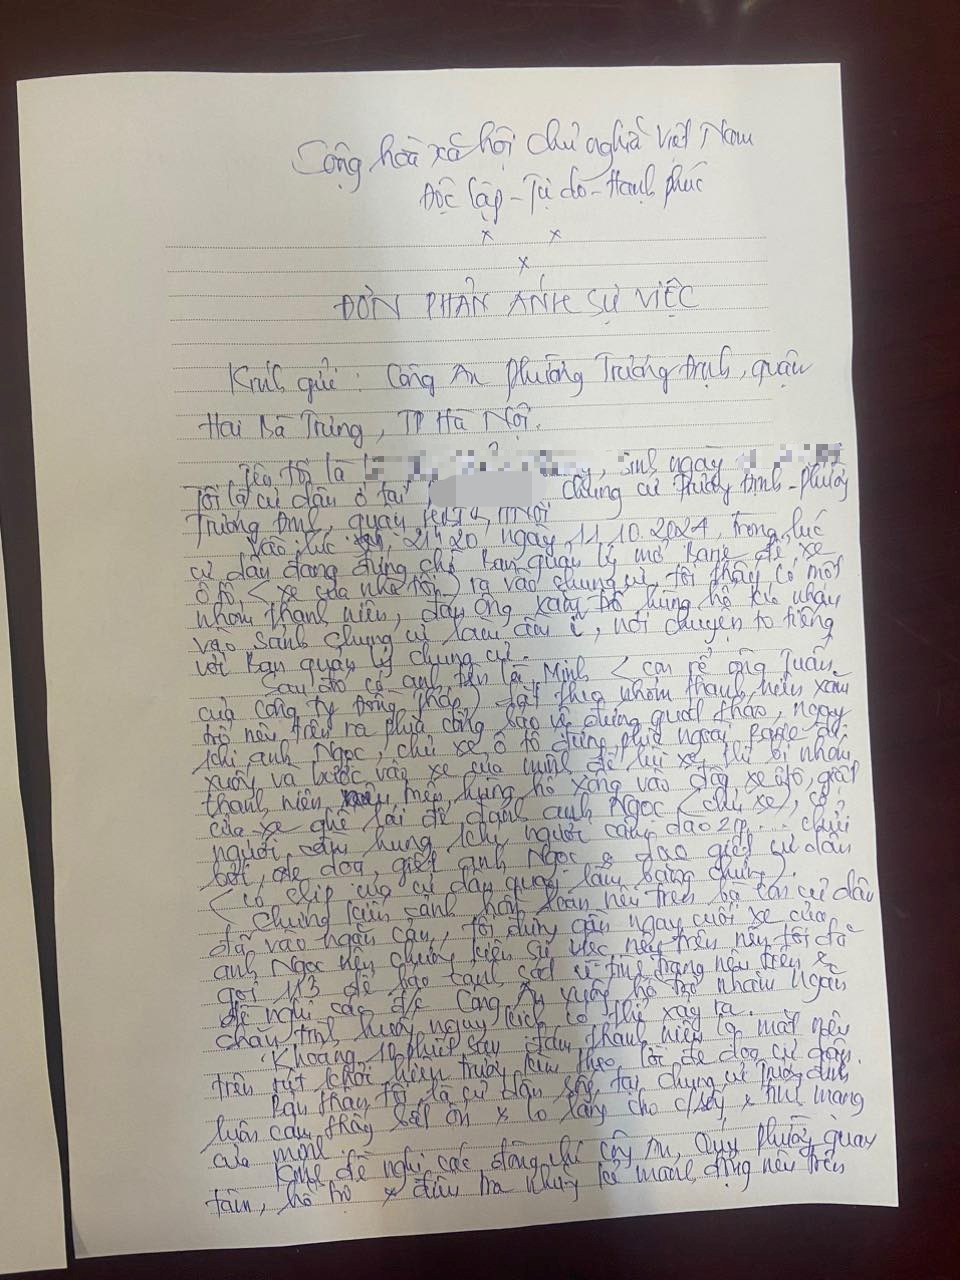 Cộng hoà xã hội chủ nghĩa Việt Nam
Độc lập - Tự do - Hạnh phúc
x x
x
ĐƠN PHẢN ÁNH SỰ VIỆC
Kính gửi : Công An phường Trương Định, quận
Hai Bà Trưng, TP Hà Nội.
Tên tôi là , sinh ngày
Tôi là cư dân ở tại chung cư Trương Định - phường
Trương Định, quận HBT, HNội
Vào lúc 21h20 ngày 11.10.2024, trong lúc
cư dân đang đứng chờ ban quản lý mở để xe
ô tô < xe của nhà tôi > ra vào chung cư, tôi thấy có một
nhóm thanh niên, đàn ông xăm trổ hùng hổ kéo nhau
vào sảnh chung cư làm ầm ĩ, nói chuyện to tiếng
với ban quản lý chung cư.
Sau đó có anh tên là Minh < con rể ông Tuấn
của công ty > dắt theo nhóm thanh niên xăm
trổ nêu trên ra phía cổng bảo vệ đứng quát tháo, ngay
khi anh Ngọc, chủ xe ô tô đứng phía ngoài đi
xuống và bước vào xe của mình để lùi xe thì bị nhóm
thanh niên hùng hổ xông vào đập xe ôtô, giật
cửa xe ghế lái để đánh anh Ngọc < chủ xe >, có
người cầm hung khí, người cầm dao ... chửi
bới, đe doạ, giết anh Ngọc & dọa giết cư dân
< có clip của cư dân quay làm bằng chứng >.
Chứng kiến cảnh hỗn loạn nêu trên bà con cư dân
đã vào ngăn cản, tôi đứng gần ngay cuối xe của
anh Ngọc nên chứng kiến sự việc nêu trên nên tôi đã
gọi 113 để báo cảnh sát về tình trạng nêu trên &
đề nghị các đ/c Công An xuống hỗ trợ nhằm ngăn
chặn tình huống nguy kịch có thể xảy ra.
Khoảng 10 phút sau đám thanh niên lạ mặt nêu
trên rút khỏi hiện trường kèm theo lời đe doạ cư dân.
Bản thân tôi là cư dân sống tại chung cư Trương Định
luôn cảm thấy bất ổn & lo lắng cho & tính mạng
của mình.
Kính đề nghị các đồng chí công An, Quý phường quan
tâm, hỗ trợ & điều tra những kẻ manh động nêu trên